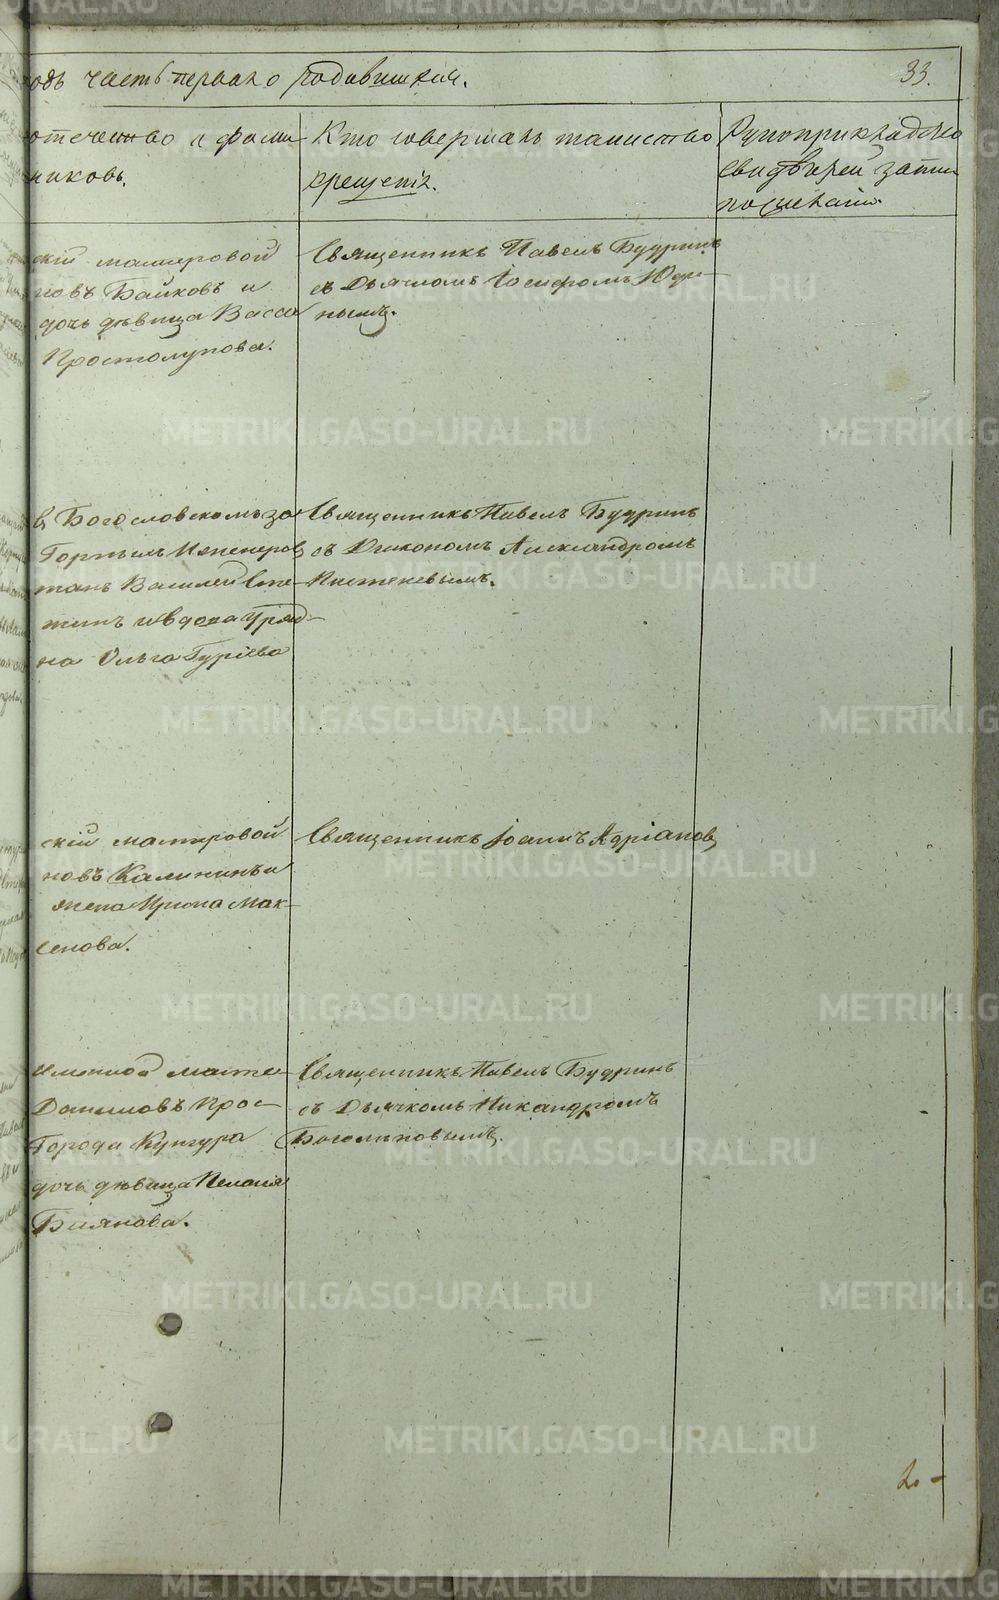 одъ часть первая о родившихся.
33.
отечество и фами-
никовъ.
Кто совершалъ таинство
крещенія.
Рукоприкладство
свидѣтелей записи
по желанію.
скій мастеровой
новъ Байковъ и
дочь дѣвица Васса
Простолупова.
Священникъ Павелъ Будринъ
съ Дьячкомъ Іосифомъ Юди-
нымъ.
въ Богословскомъ за-
Горныхъ Инженеровъ
танъ Василей Сте-
жинъ и вдова Уряд-
на Ольга Гуріева
Священникъ Павелъ Будринъ
съ Діакономъ Александромъ
скій мастеровой
новъ Калининъ и
жена Ирина Мак-
сенова.
Священникъ Іоаннъ Адріановъ
именной масте-
Даниловъ Прос-
Города Кунгура
дочь дѣвица Пелагія
Биянова.
Священникъ Павелъ Будринъ
съ Дьячкомъ Никандромъ
Боголѣповымъ.
METRIKI.GASO-URAL.RU